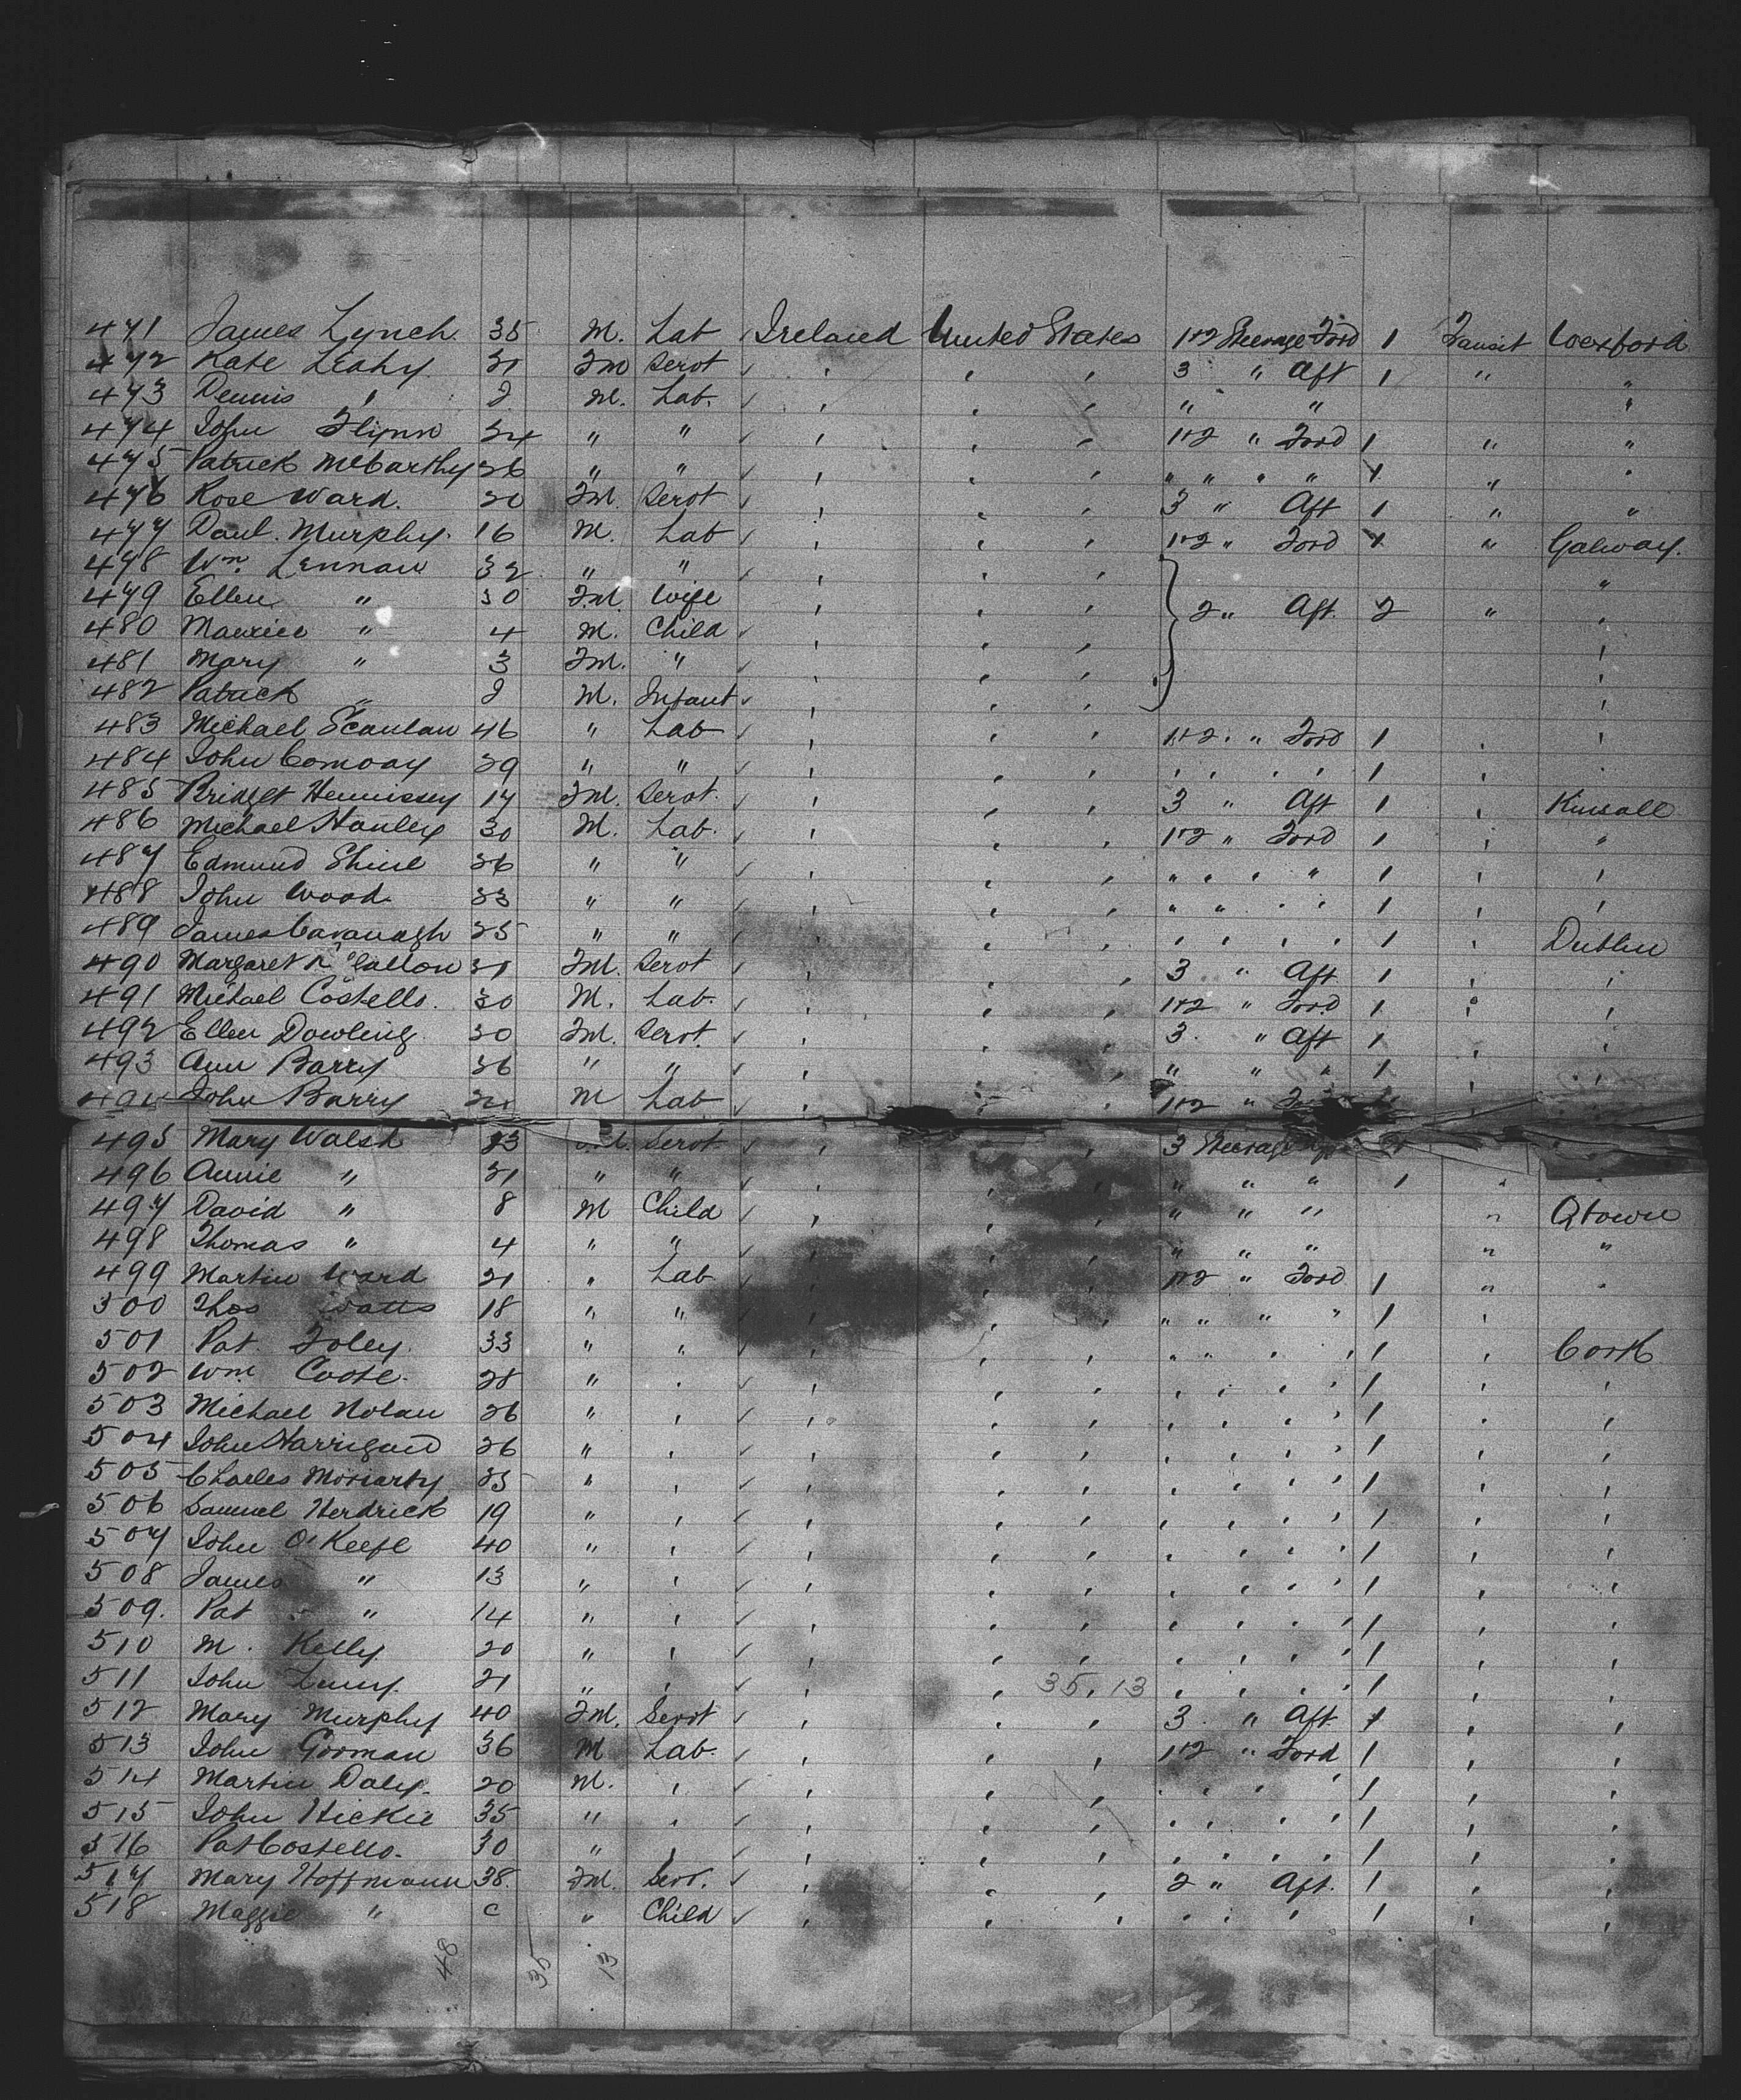 471 James Lynch. 35 M. Lab ✓ Ireland United States 1+2 Steerage Ford 1 Transit Wexford
472 Kate Leahy 31 Fm Servt ✓ , , , 3 " Aft 1 " "
473 Dennis " M. Lab. ✓ , , , " " "
474 John Flynn 24 " " ✓ , , , 1+2 " Ford 1 " "
475 Patrick McCarthy 26 " " ✓ , , , " " " " 1 " "
476 Rose Ward. 20 Fm. Servt ✓ , , , 3 " Aft 1 " "
477 Danl. Murphy. 16 M. Lab ✓ , , , 1+2 " Ford 1 " Galway.
478 Wm. Lennan 32 " " ✓ , , , "
479 Ellen " 30 Fm. Wife , , , 2 " Aft. 2 " "
480 Maurice " 4 M. Child ✓ , , ,
481 Mary " 3 Fm. " ✓ , , , ,
482 Patrick " M. Infant ✓ , , , ,
483 Michael Scanlan 46 " Lab ✓ , , , 1+2 " Ford 1 , ,
484 John Conway 29 " " ✓ , , , , , , , 1 , ,
485 Bridget Hennissey 17 Fm. Servt. ✓ , , , 3 " Aft 1 , Kinsall
486 Michael Hanley 30 M. Lab. ✓ , , , 1+2 " Ford 1 , "
487 Edmund Shine 26 " " ✓ , , , " " " " 1 , ,
488 John Wood. 33 " " ✓ , , , " " " " 1 , ,
489 James Cavanagh 25 " " ✓ , , , , , , , 1 , Dublin
490 Margaret Fm. Servt ✓ , , , 3 " Aft 1 , ,
491 Michael Costello. 30 M. Lab. ✓ , , , 1+2 " Ford 1 " ,
492 Ellen Dowling. 30 Fm. Servt. ✓ , , , 3. " Aft 1 , ,
493 Ann Barry 36 " " ✓ , , , " " " 1 , ,
494 John Barry M Lab ✓ , , , 1+2 "
495 Mary Walsh 23 Servt. ✓ , , 3 Steerage
496 Annie " 21 " " ✓ , , , " " " 1 "
497 David " 8 M Child ✓ , , , " " " " Qtown
498 Thomas " 4 " " ✓ , , , " " " " "
499 Martin Ward 21 " Lab , , 1+2 " Ford 1 " "
500 Thos Watts 18 " " , , " " " " 1 ,
501 Pat. Foley. 33 " " , , " " , , 1 , Cork
502 Wm. Coote. 28 " , ✓ , , , , , , , 1 , ,
503 Michael Nolan 26 " , ✓ , , , , , , , 1 , ,
504 John Harrigan 26 " , ✓ , , , , , , , 1 , ,
505 Charles Moriarty 25 " , ✓ , , , , , , , 1 , ,
506 Samuel Herdrick 19 " , ✓ , , , , , , , 1 , ,
507 John O'Keefe 40 " , ✓ , , , , , , , 1 , ,
508 James " 13 " , ✓ , , , , , , , 1 , ,
509. Pat " 14 " , ✓ , , , , , , , 1 , ,
510 M. Kelly 20 " , ✓ , , , , , , , 1 , ,
511 John 21 " , ✓ , , 35,13 , , , , 1 , ,
512 Mary Murphy 40 Fm. Servt ✓ , , , 3. " Aft 1 , ,
513 John Gorman 36 M Lab. ✓ , , , 1+2 " Ford 1 , ,
514 Martin Daly. 20 M. , ✓ , , , , , , , 1 , ,
515 John Hickie 35 " , ✓ , , , , , , , 1 , ,
516 Pat Costello. 30 " , ✓ , , , , , , , 1 , ,
517 Mary Hoffmann 38. Fm. Servt. ✓ , , , 2 " Aft. 1 , ,
518 Maggie " c " Child ✓ , , , , , , , 1 , ,
48 35 13